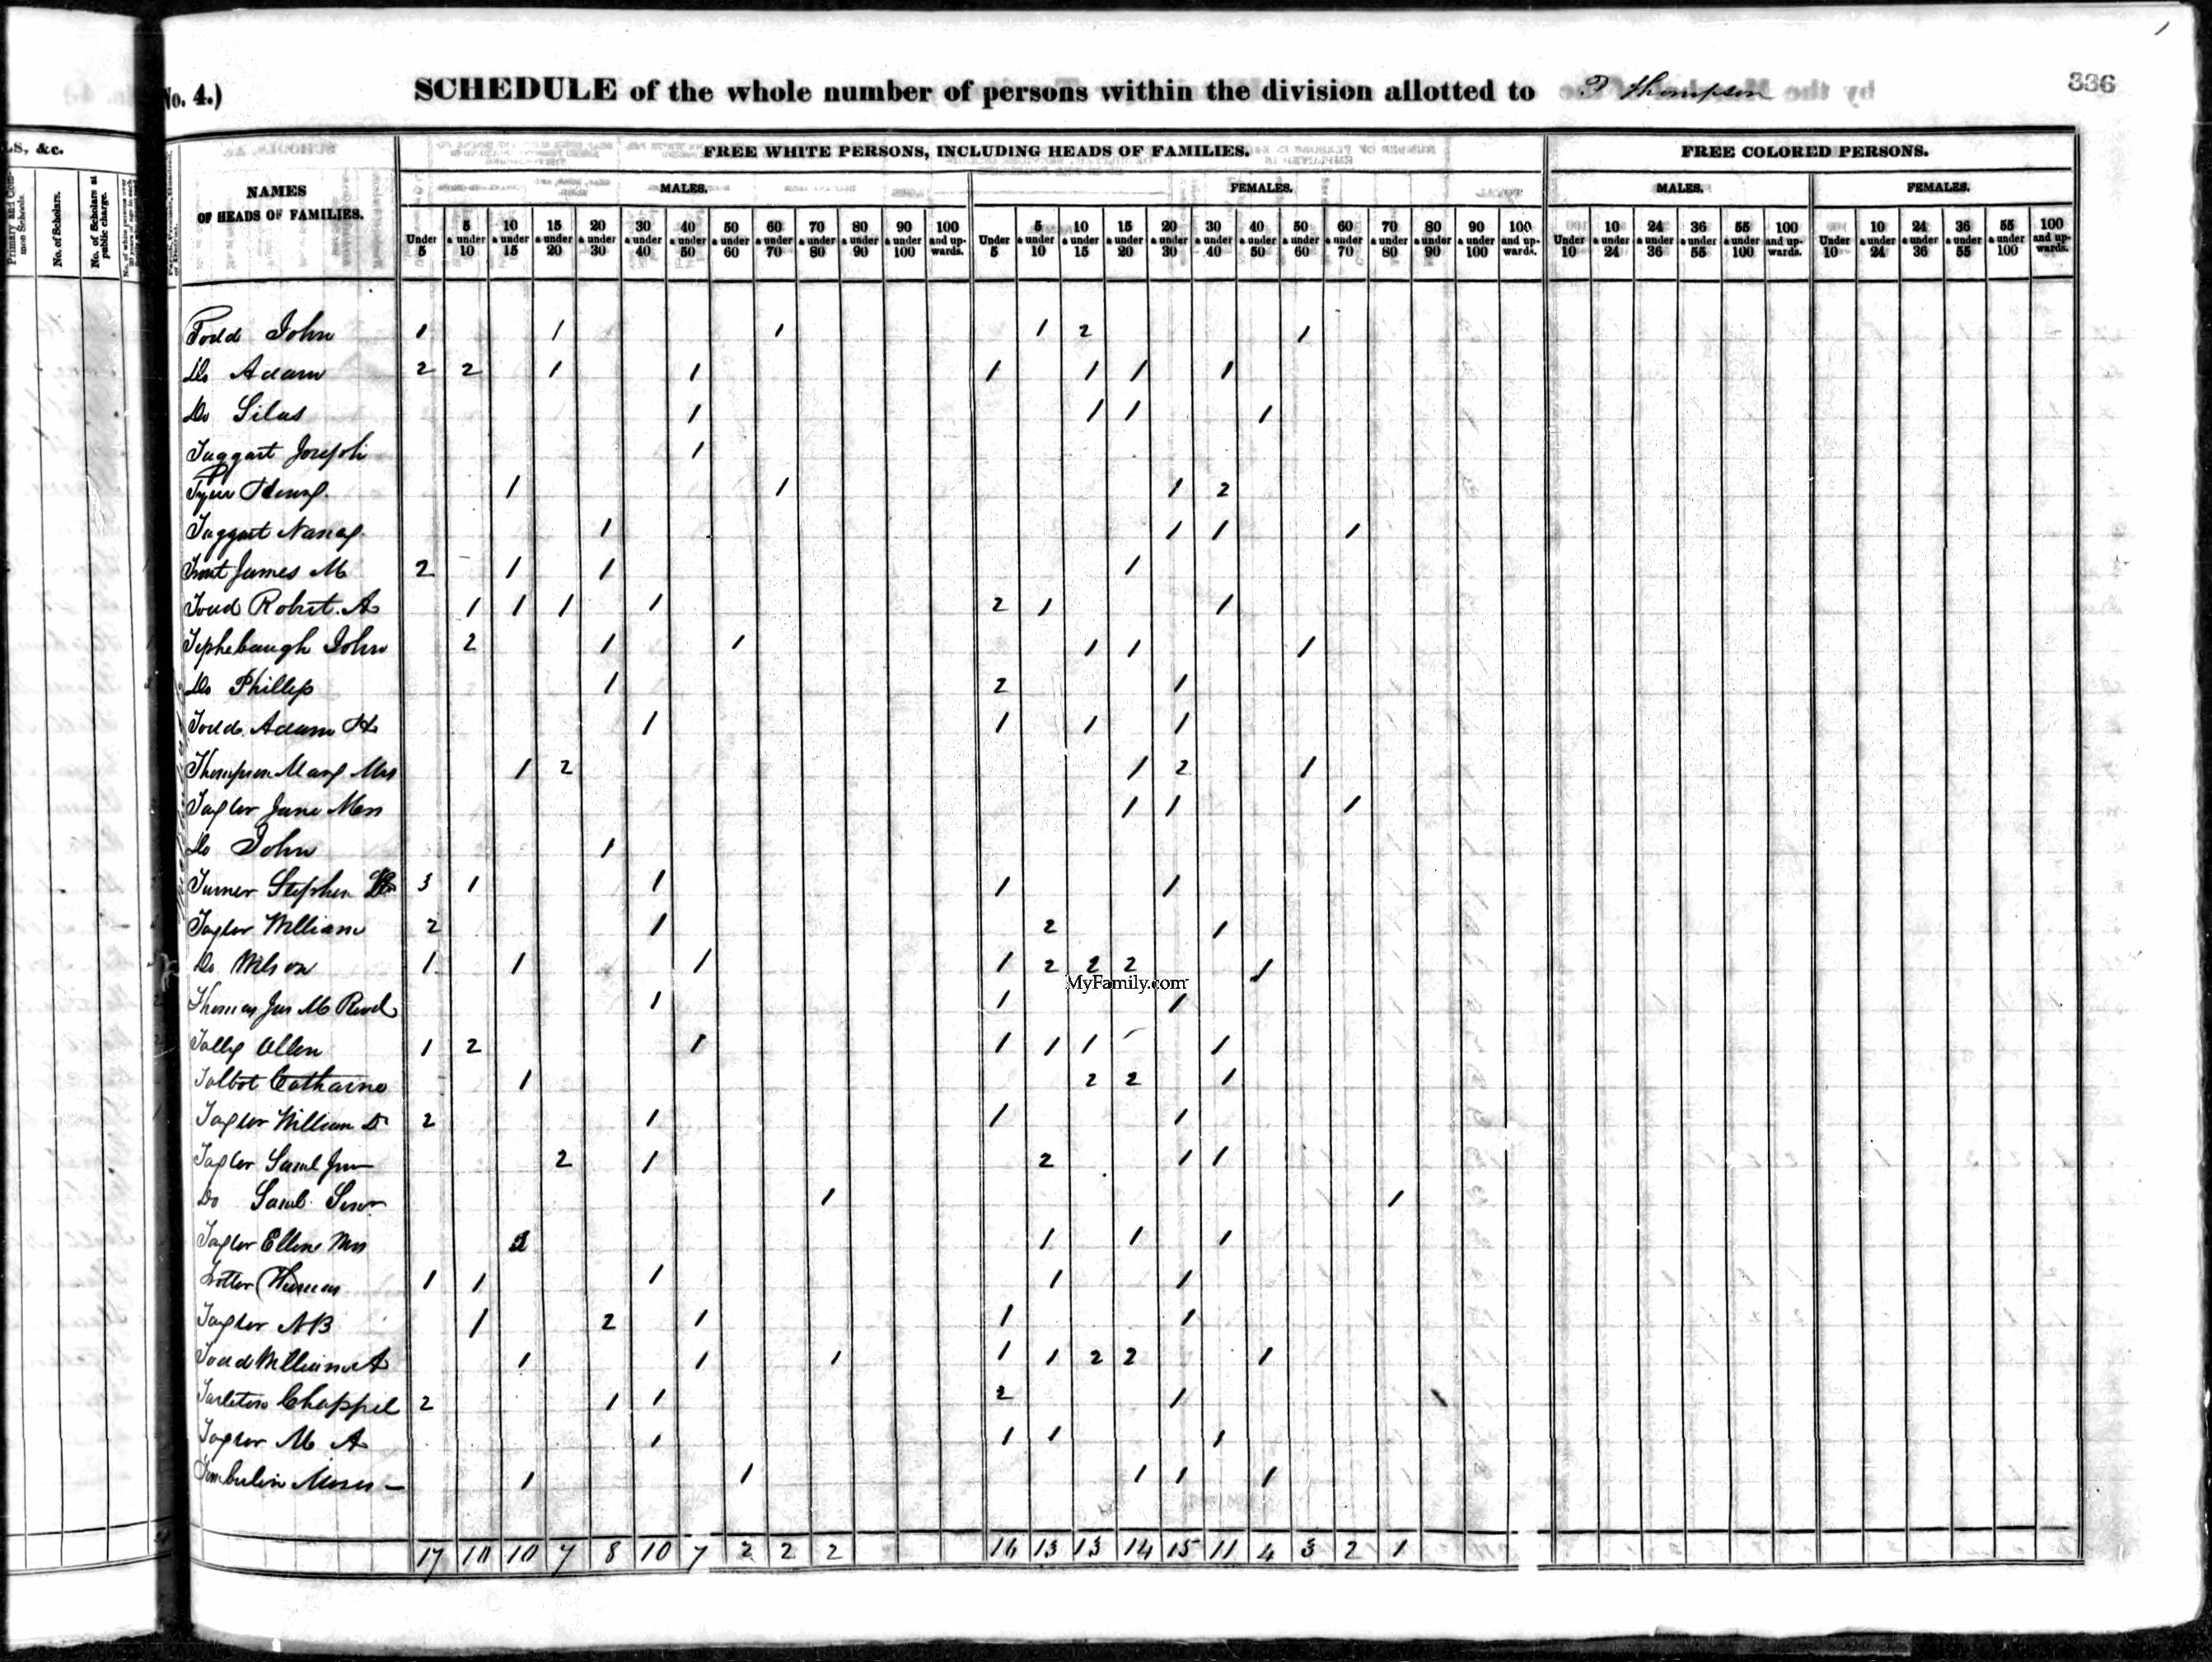 336
No. 4.) SCHEDULE of the whole number of persons within the division allotted to Thompson
LS, &c.
Primary and Common Schools.
No. of Scholars.
No. of Scholars at public charge.
NAMES
OF HEADS OF FAMILIES.
FREE WHITE PERSONS, INCLUDING HEADS OF FAMILIES.
FREE COLORED PERSONS.
MALES. FEMALES. MALES. FEMALES.
Under 5
5 & under 10
10 & under 15
15 & under 20
20 & under 30
30 & under 40
40 & under 50
50 & under 60
60 & under 70
70 & under 80
80 & under 90
90 & under 100
100 and upwards.
Under 5
5 & under 10
10 & under 15
15 & under 20
20 & under 30
30 & under 40
40 & under 50
50 & under 60
60 & under 70
70 & under 80
80 & under 90
90 & under 100
100 and upwards.
Under 10
10 & under 24
24 & under 36
36 & under 55
55 & under 100
100 and upwards.
Under 10
10 & under 24
24 & under 36
36 & under 55
55 & under 100
100 and upwards.
Todd John 1 1 1 1 2 1
Do Adam 2 2 1 1 1 1 1 1
Do Silas 1 1 1 1
Taggart Joseph 1
Henry 1 1 1 2
Taggart Nancy 1 1 1 1
James M 2 1 1 1
Todd Robert A 1 1 1 1 2 1 1
Tephebaugh John 2 1 1 1 1 1
Do Phillip 1 2 1
Todd Adam H 1 1 1 1
Thompson Mary Mrs 1 2 1 2 1
Taylor Jane Mrs 1 1 1
Do John 1
Turner Stephen 3 1 1 1 1
Taylor William 2 1 2 1
Do Wilson 1 1 1 1 2 2 2 1
MyFamily.com
Thomas Jas M Revd 1 1 1
Tally Allen 1 2 1 1 1 1 1
Talbot Catharine 1 2 2 1
Taylor William D 2 1 1 1
Taylor Saml Jun 2 1 2 1 1
Do Saml Senr 1 1
Taylor Ellen Mrs 2 1 1 1
Thomas 1 1 1 1 1
Taylor N B 1 2 1 1 1
Todd William A 1 1 1 1 1 2 2 1
Tarleton Chappel 2 1 1 2 1
Taylor M A 1 1 1 1
Moses 1 1 1 1 1
17 10 10 7 8 10 7 2 2 2 16 13 13 14 15 11 4 3 2 1